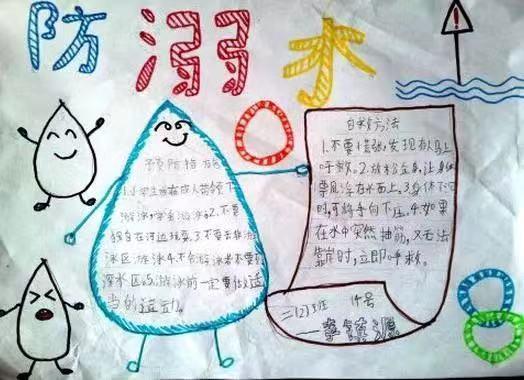 防溺水
预防措施
1.小学生应在成人带领下
游泳,学会游泳。2.不要
独自在河边玩耍。3.不要去非游
泳区游泳。4.不会游泳者不要到
深水区。5.游泳前一定要做适
当的运动。
自救方法
1.不要慌张,发现有人马上
呼救。2.放松全身,让身体
飘浮在水面上。3.身体下沉
时,可将手向下压。4.如果
在水中突然抽筋,又无法
靠岸时,立即呼救。
二(2)班 14号
李
源